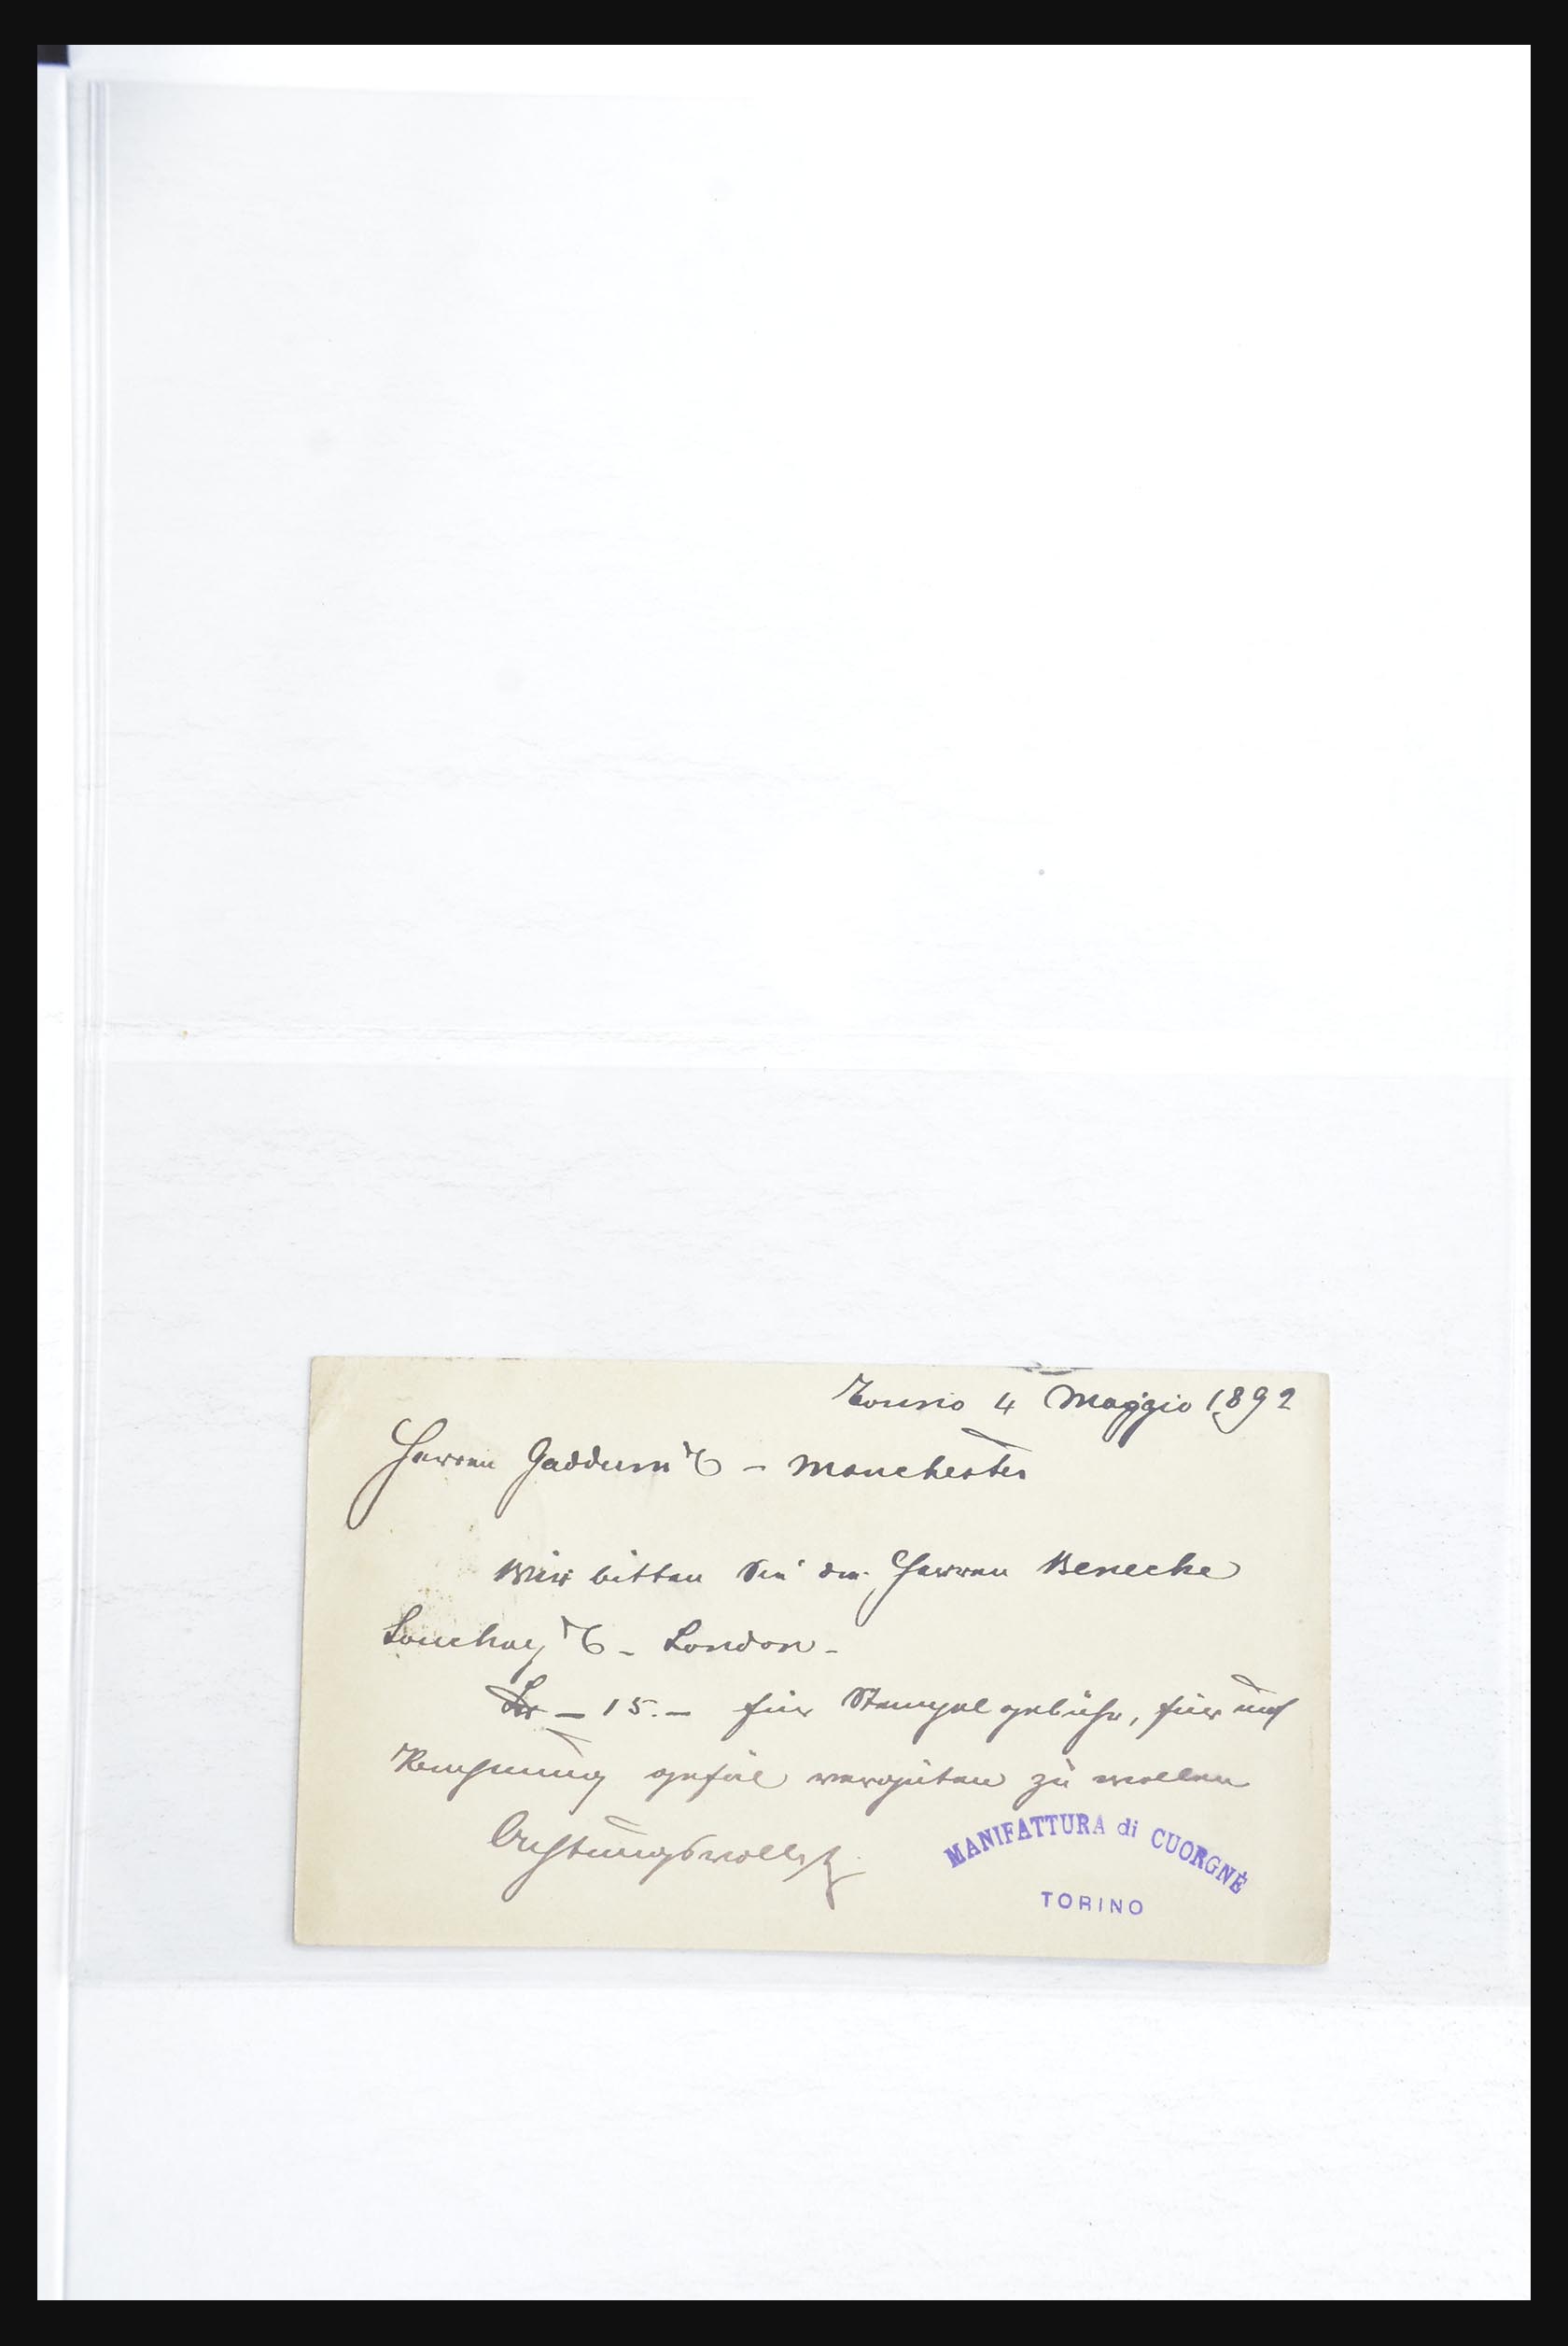 Torino 4 Maggio 1892
Herren Gaddum & Co – Manchester
Wir bitten Sie den Herren Benecke
Souchay & Co – London –
– 15.– für Stempelgebühr, für uns
Rechnung gefäl vergüten zu wollen
Achtungsvollst
MANIFATTURA di CUORGNÈ
TORINO